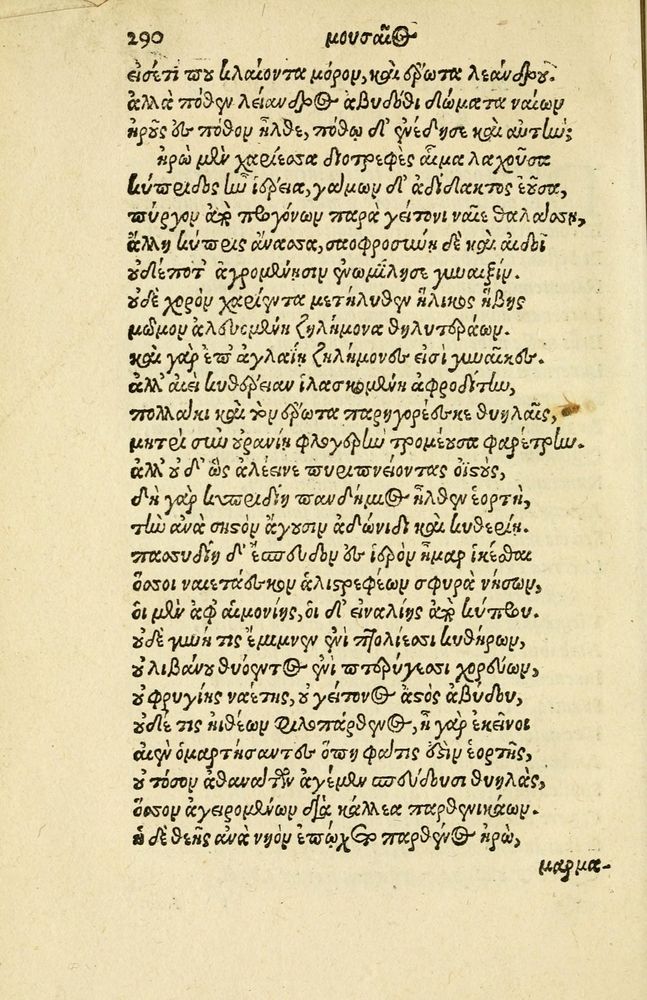 290 μουσαῖος
εἰσέτι που κλαίοντα μόρον, καὶ ἔρωτα λεάνδρου.
ἀλλὰ πόθεν λείανδρος ἀβυδόθι δώματα ναίων
ἡροῦς ἐς πόθον ἦλθε, πόθῳ δ' ἐνέδησε καὶ αὐτήν;
ἡρὼ μὲν χαρίεσσα διοτρεφὲς αἷμα λαχοῦσα
κύπριδος ἦν ἱέρεια, γάμων δ' ἀδίδακτος ἐοῦσα,
πύργον ἀπὸ προγόνων παρὰ γείτονι ναῖε θαλάσσῃ,
ἄλλη κύπρις ἄνασσα, σαοφροσύνῃ δὲ καὶ αἰδοῖ
οὐδέποτ' ἀγρομένῃσιν ἐνωμίλησε γυναιξίν.
οὐδὲ χορὸν χαρίεντα μετήλυθεν ἥλικος ἥβης
μῶμον ἀλευομένη ζηλήμονα θηλυτεράων.
καὶ γὰρ ἐπ' ἀγλαΐῃ ζηλήμονες εἰσὶ γυναῖκες.
ἀλλ' αἰεὶ κυθέρειαν ἱλασκομένη ἀφροδίτην,
πολλάκι καὶ τὸν ἔρωτα παρηγορέεσκε θυηλαῖς,
μητρὶ σὺν οὐρανίῃ φλογερὴν τρομέουσα φαρέτρην.
ἀλλ' οὐδ' ὣς ἀλέεινε πυριπνείοντας ὀϊστούς,
δὴ γὰρ κυπριδίη πανδήμιος ἦλθεν ἑορτὴ,
τὴν ἀνὰ σηστὸν ἄγουσιν ἀδώνιδι καὶ κυθερείῃ.
πασσυδίῃ δ' ἔσπευδον ἐς ἱερὸν ἦμαρ ἱκέσθαι
ὅσσοι ναιετάεσκον ἁλιστρεφέων σφυρὰ νήσων,
οἱ μὲν ἀφ' αἱμονίης, οἱ δ' εἰναλίης ἀπὸ κύπρου.
οὐδὲ γυνή τις ἔμιμνεν ἐνὶ πτολίεσσι κυθήρων,
οὐ λιβάνου θυόεντος ἐνὶ πτερύγεσσι χορεύων,
οὐ φρυγίης ναέτης, οὐ γείτονος ἀστὸς ἀβύδου,
οὐδέ τις ἠϊθέων φιλοπάρθενος, ἦ γὰρ ἐκεῖνοι
αἰὲν ὁμαρτήσαντες ὅπῃ φάτις ἐστὶν ἑορτῆς,
οὐ τόσον ἀθανάτων ἀγέμεν σπεύδουσι θυηλὰς,
ὅσσον ἀγειρομένων διὰ κάλλεα παρθενικάων.
ἡ δὲ θεῆς ἀνὰ νηὸν ἐπῴχετο παρθένος ἡρὼ,
μαρμα-